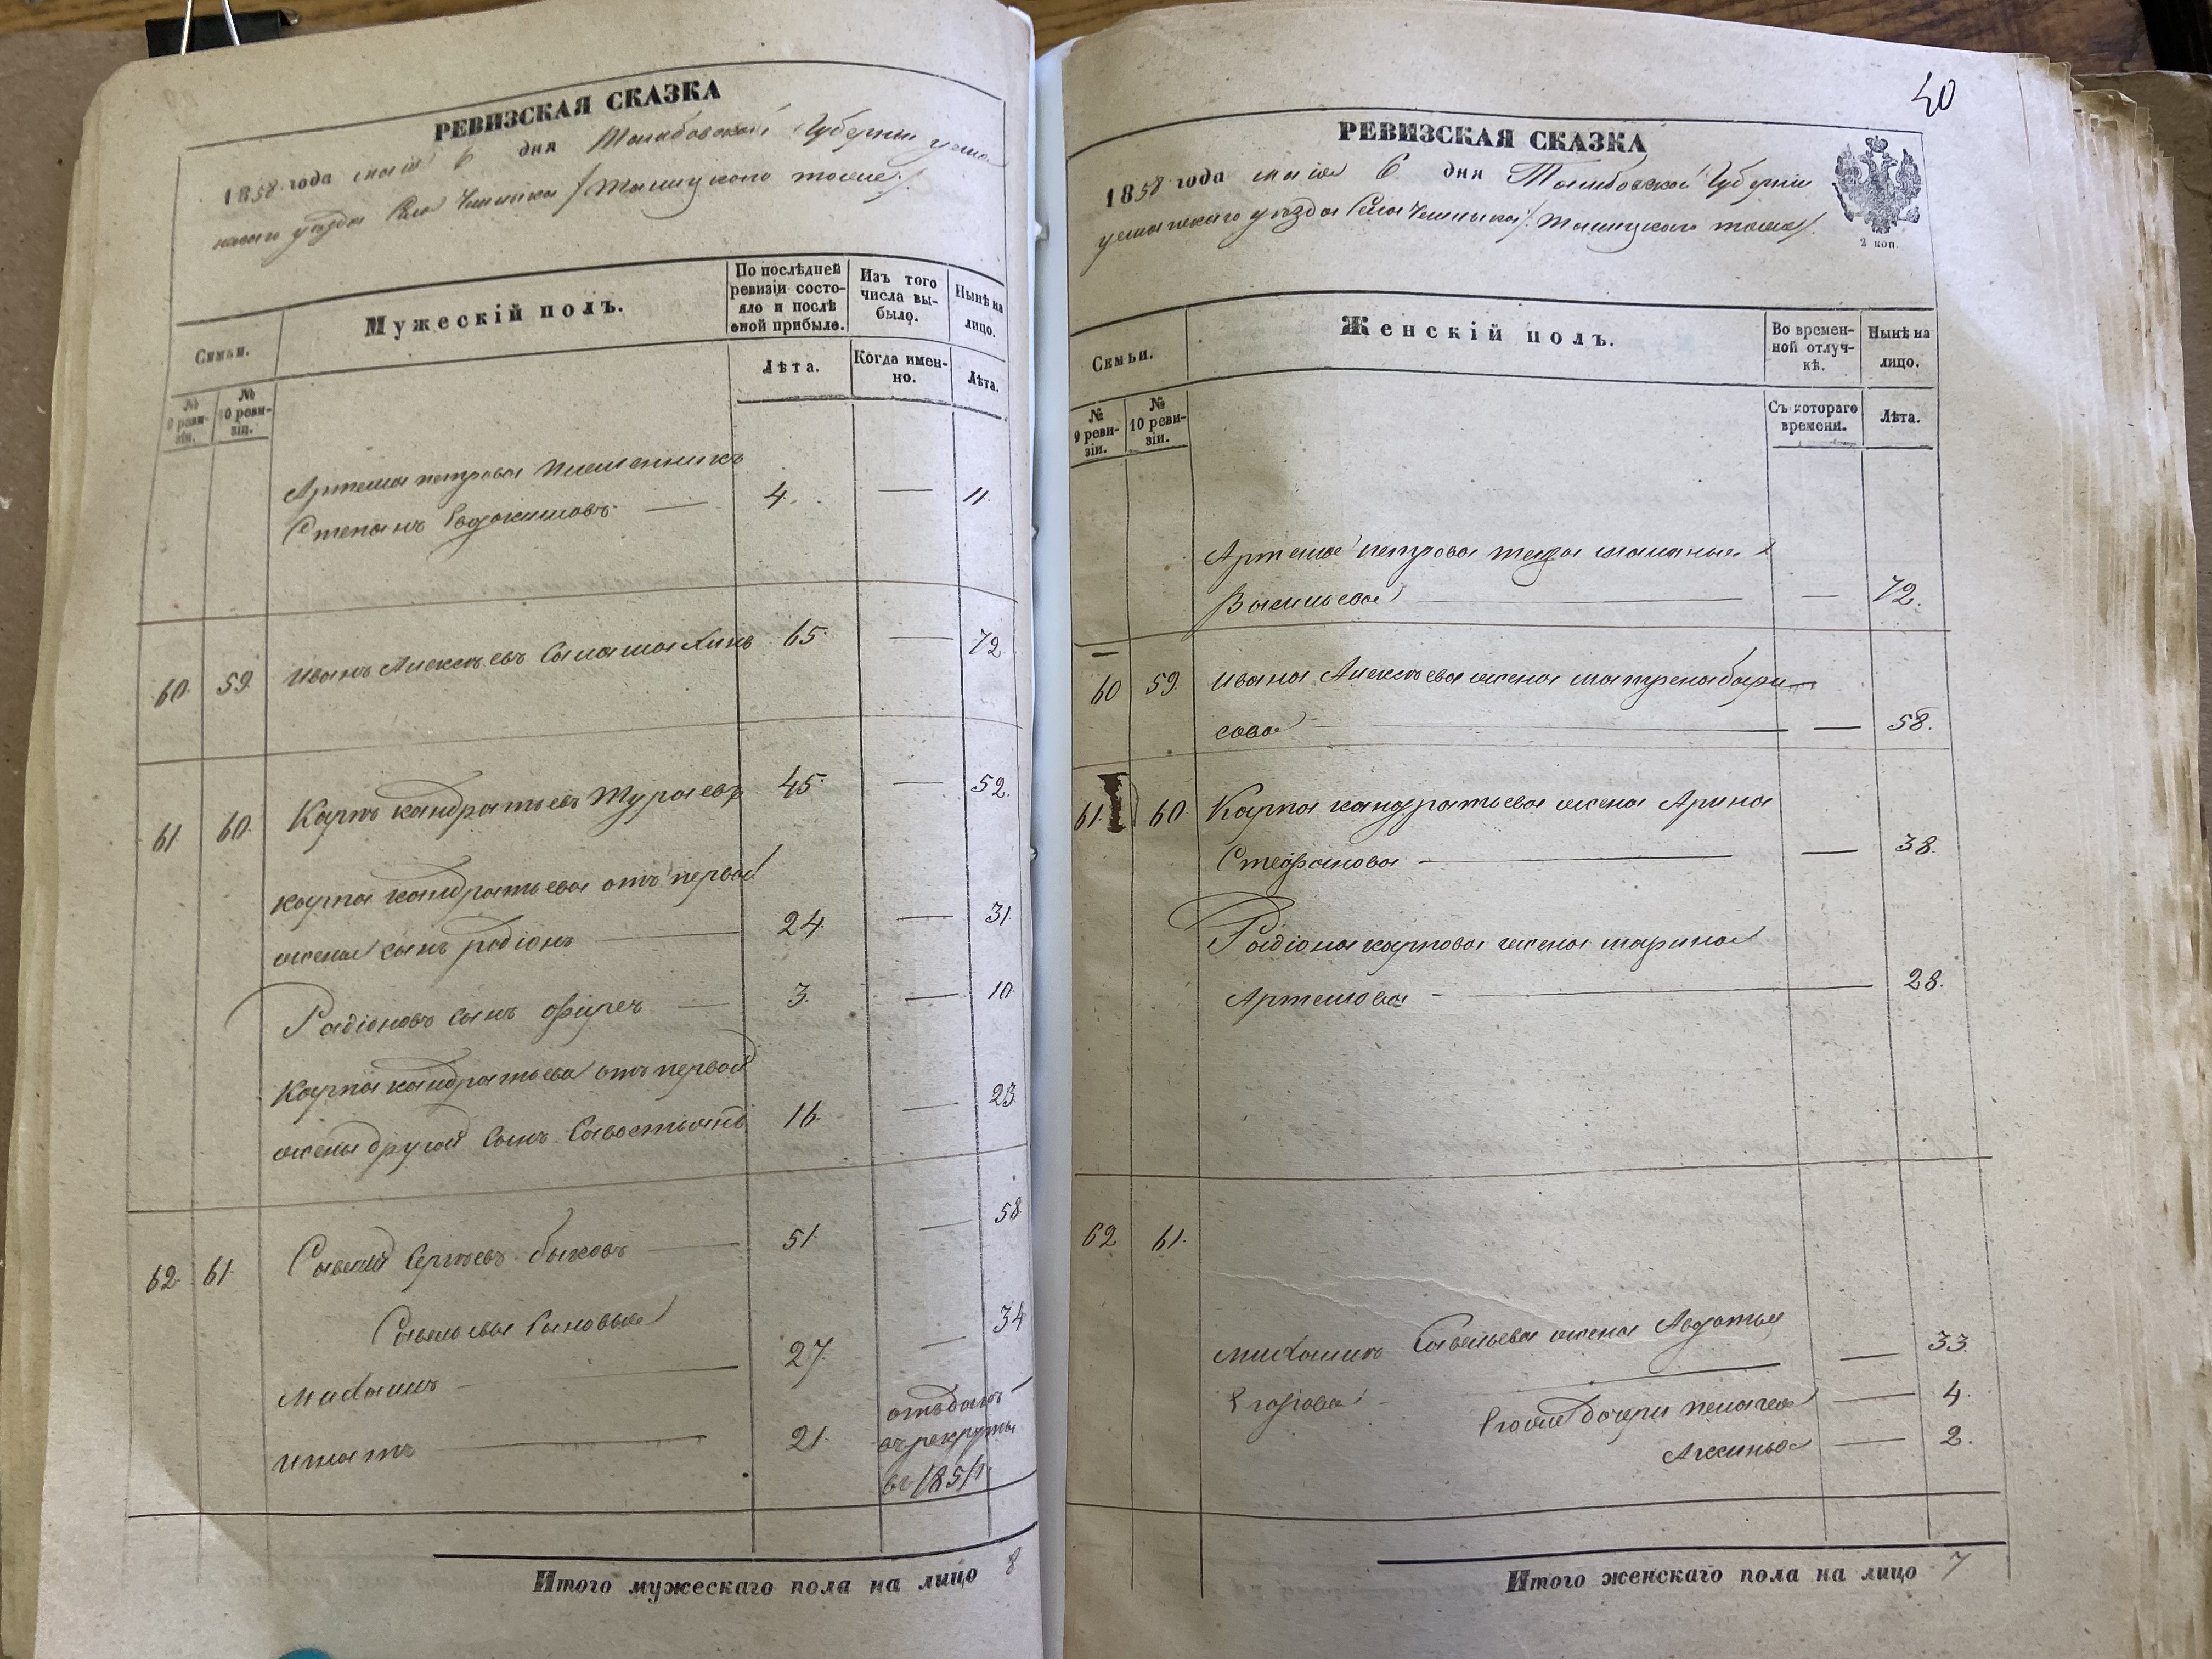 РЕВИЗСКАЯ СКАЗКА
1858 года маія 6 дня Тамбовской Губерніи усма
нскаго уѣзда Села Чемлыка /Талицкаго тожъ/.
Семьи.
Мужескій полъ.
По послѣдней ревизіи состояло и послѣ оной прибыло.
Изъ того числа выбыло.
Нынѣ на лицо.
№ 9 ревизіи.
№ 10 ревизіи.
Лѣта.
Когда именно.
Лѣта.
Артема петрова племенникъ
Степанъ Евдокимовъ 4. — 11.
60. 59. Иванъ Алексѣевъ 65. — 72.
61 60. Карпъ кандратьевъ Тураевъ 45. — 52.
Карпа кандратьева отъ первой
жены сынъ родіонъ 24. — 31.
Радіоновъ сынъ 3. — 10.
Карпа кандратьева отъ первой
жены другой Сынъ Савостьянъ 16. — 23.
62. 61. Савелій Сергѣевъ быковъ 51. — 58.
Савельевы Сыновья
михаилъ 27. — 34
игнатъ 21. отъданъ
въ рекруты
въ 1851 г.
Итого мужескаго пола на лицо 8
40
РЕВИЗСКАЯ СКАЗКА
1858 года маія 6 дня Тамбовской Губерніи
усманскаго уѣзда Села Чемлыка /Талицкаго тожъ/.
2 коп.
Семьи.
Женскій полъ.
Во временной отлучкѣ.
Нынѣ на лицо.
№ 9 ревизіи.
№ 10 ревизіи.
Съ котораго времени.
Лѣта.
Артема петрова маланья
Васильева — 72.
60 59. Ивана Алексѣева жена матрена бори
сова — 58.
61. 60. Карпа кандратьева жена Арина
Стефанова — 38.
Радіона карпова жена марина
Артемова 28.
62 61.
михаила Савельева жена Авдотья
Егорова — 33.
Егоже дочери пелагея — 4.
Аксинья — 2.
Итого женскаго пола на лицо 7